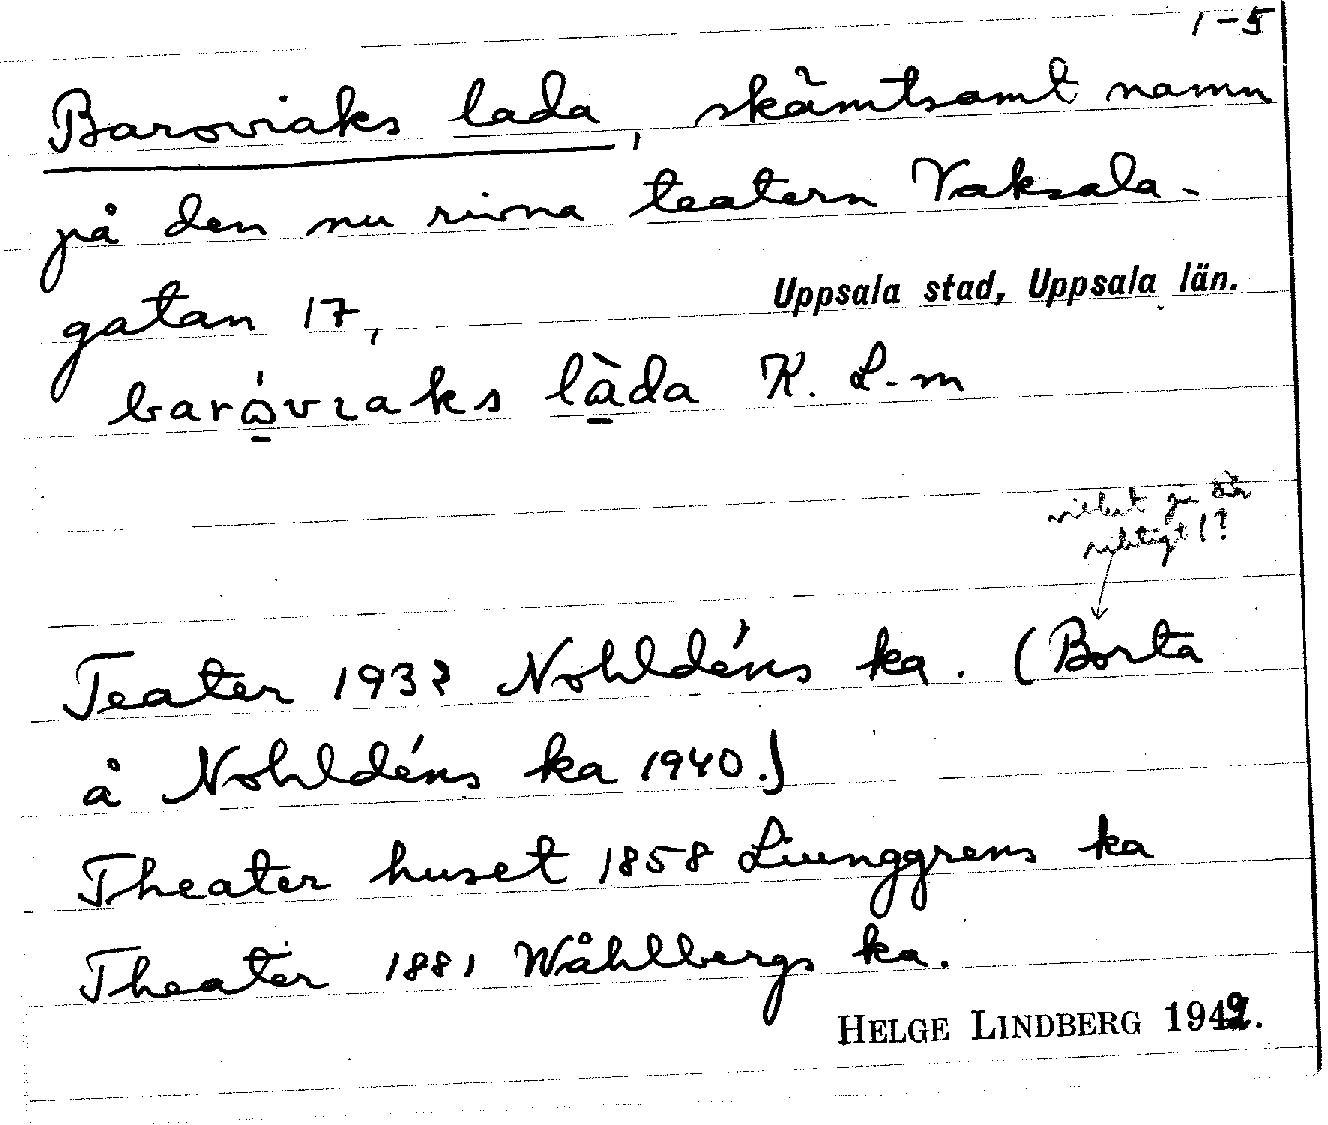 1-5
Baroviaks lada, skämtsamt namn
på den nu rivna teatern Vaksala-
gatan 17,
Uppsala stad, Uppsala län.
baråvıaks làda K. L-m
vilket ju är
riktigt!?
Teater 1932 Nohldéns ka. (Borta
å Nohldéns ka 1940.)
Theater huset 1858 Liunggrens ka
Theater 1881 Wåhlbergs ka.
HELGE LINDBERG 1942.